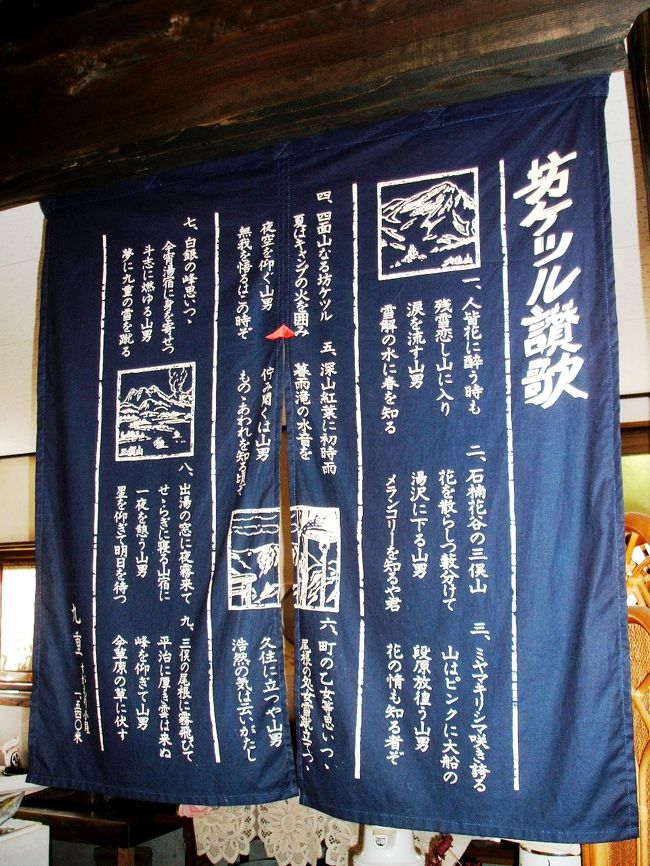 坊ガツル讃歌
一、人皆花に酔う時も
残雪恋し山に入り
涙を流す山男
雪解の水に春を知る
二、石楠花谷の三俣山
花を散らしつ藪分けて
湯沢に下る山男
メランコリーを知るや君
三、ミヤマキリシマ咲き誇る
山はピンクに大船の
段原放徨う山男
花の情も知る者ぞ
四、四面山なる坊ガツル
夏はキャンプの火を囲み
夜空を仰ぐ山男
無我を悟るはこの時ぞ
五、深山紅葉に初時雨
暮雨滝の水音を
佇み聞くは山男
ものゝあわれを知る頃ぞ
六、町の乙女等思いつゝ
尾根の処女雪蹴立てつゝ
久住に立つや山男
浩然の気は云いがたし
七、白銀の峰思いつゝ
今宵湯宿に身を寄せつ
斗志に燃ゆる山男
夢に九重の雪を蹴る
三俣山
八、出湯の窓に夜霧来て
せゝらぎに寝る山宿に
一夜を憩う山男
星を仰ぎて明日を待つ
九、三俣の尾根に霧飛びて
平治に厚き雲は来ぬ
峰を仰ぎて山男
今草原の草に伏す
九重
一、五四〇米